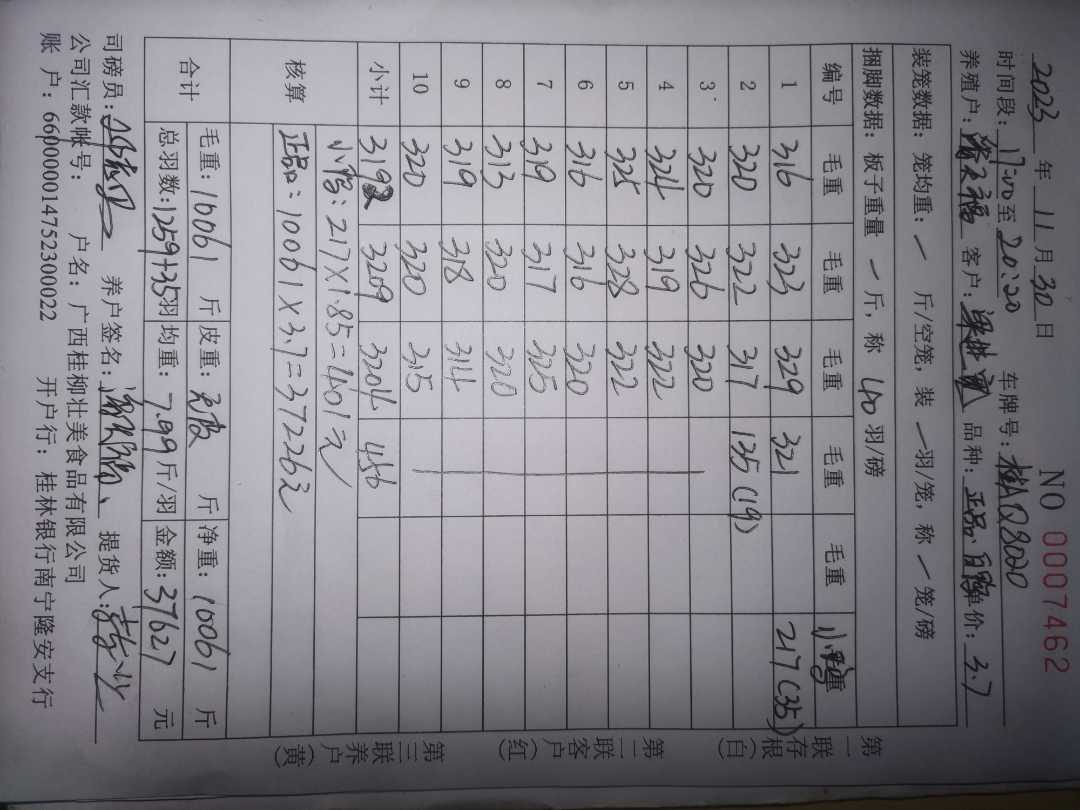 NO 0007462
2023 年 11 月 30 日
时间段: 17:00 至 20:20 车牌号: 桂AQ8020
养殖户: 客户: 品种: 正品、白鸭 单价: 3.7
装笼数据: 笼均重: 一 斤/空笼, 装 一 羽/笼, 称 一 笼/磅
捆脚数据: 板子重量 一 斤, 称 40 羽/磅
编号 毛重 毛重 毛重 毛重 毛重 小鸭
1 316 323 329 321 217(35)
2 320 322 317 135(19)
3 320 326 320
4 324 319 322
5 325 328 322
6 316 316 320
7 319 317 325
8 313 320 320
9 319 318 314
10 320 320 315
小计 3192 3209 3204 456
核算 小鸭: 217×1.85=401元
正品: 10061×3.7=37226元
合计 毛重: 10061 斤 皮重: 无皮 斤 净重: 10061 斤
总羽数: 1259+35 羽 均重: 7.99 斤/羽 金额: 37627 元
司磅员: 养户签名: 提货人:
公司汇款帐号: 户名: 广西桂柳壮美食品有限公司
账 户: 660000014752300022 开户行: 桂林银行南宁隆安支行
第一联存根(白)
第二联客户(红)
第三联养户(黄)